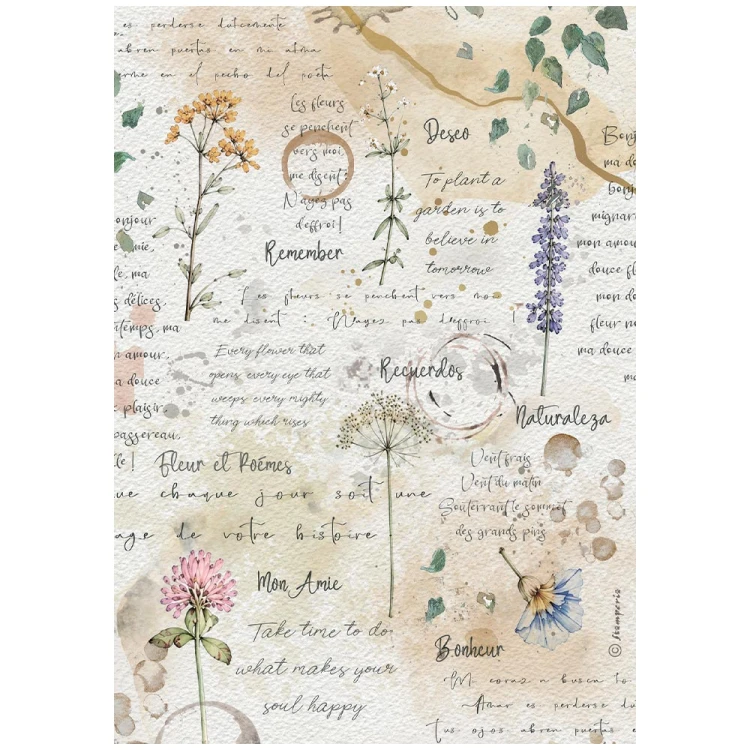 es perderse dulcemente
abren puertas en mi alma
orme en el pecho del poeta
Les fleurs
se penchent
vers moi,
me disent :
N'ayez pas
d'effroi!
Deseo
To plant a
garden is to
believe in
tomorrow
Remember
Bonj
ma do
bonj
mignar
mon amou
douce fl
mon do
fleur n
ma douc
m
onjour
e mie,
le, ma
s délices,
ntemps, ma
n amour,
a douce
e plaisir,
passereau,
lle!
Les fleurs se penchent vers moi
me disent : N'ayez pas d'effroi !
Every flower that
opens every eye that
weeps every mighty
thing which rises
Recuerdos
Naturaleza
Fleur et Poémes
Vent frais
Vent du matin
Souterrant le sommet
des grands pins
ue chaque jour soit une
age de votre histoire
Mon Amie
Take time to do
what makes your
soul happy
Bonheur
Mi corazon busca to
Amar es perderse du
Tus ojos abren puertas e
© Stamperia